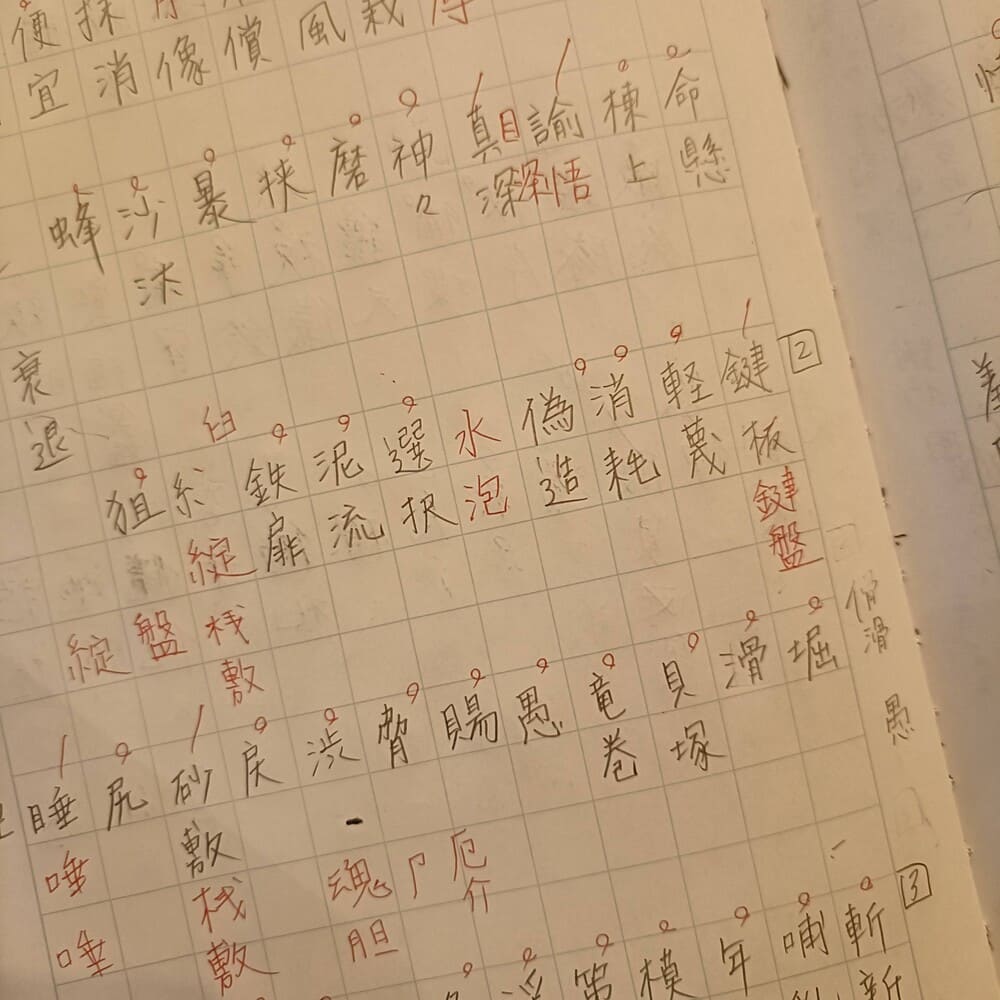 風栽
宜消像償
命懸
棟上
諭
悟
真深
目深
神々
磨
挟
暴
沙汰
蜂
2
鍵板
鍵盤
軽蔑
消耗
偽造
水泡
選択
泥流
鉄扉
臼
糸
綻
桟敷
狙
盤
綻
衰退
滑
愚
堀
滑
貝塚
竜巻
愚
賜
厄介
脅
渋
魂胆
戻
砂敷
桟敷
尻
睡
唾
唾
3
斬新
哺
年
模